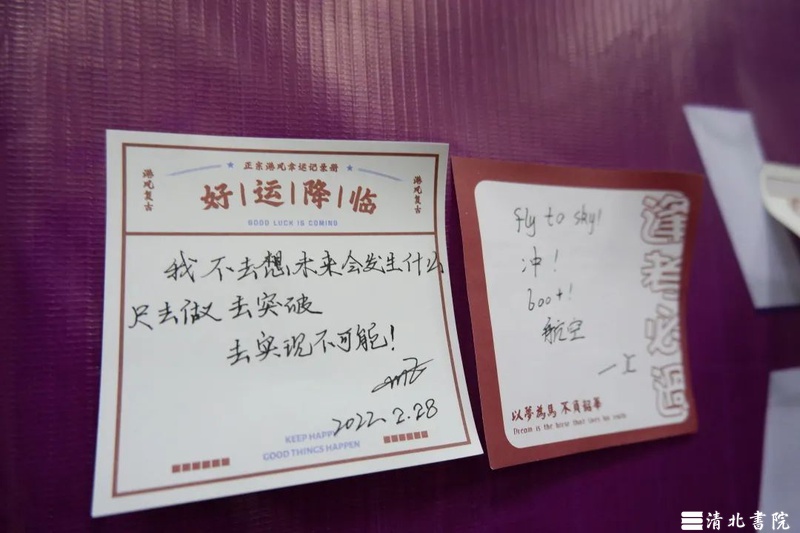 正宗港风幸运记录册
港风复古
好运降临
港风复古
GOOD LUCK IS COMING
我不去想未来会发生什么
只去做 去突破
去实现不可能!
2022.2.28
KEEP HAPPY
GOOD THINGS HAPPEN
fly to sky!
冲!
600+!
航空
逢考必过
以梦為馬 不負韶華
清北書院